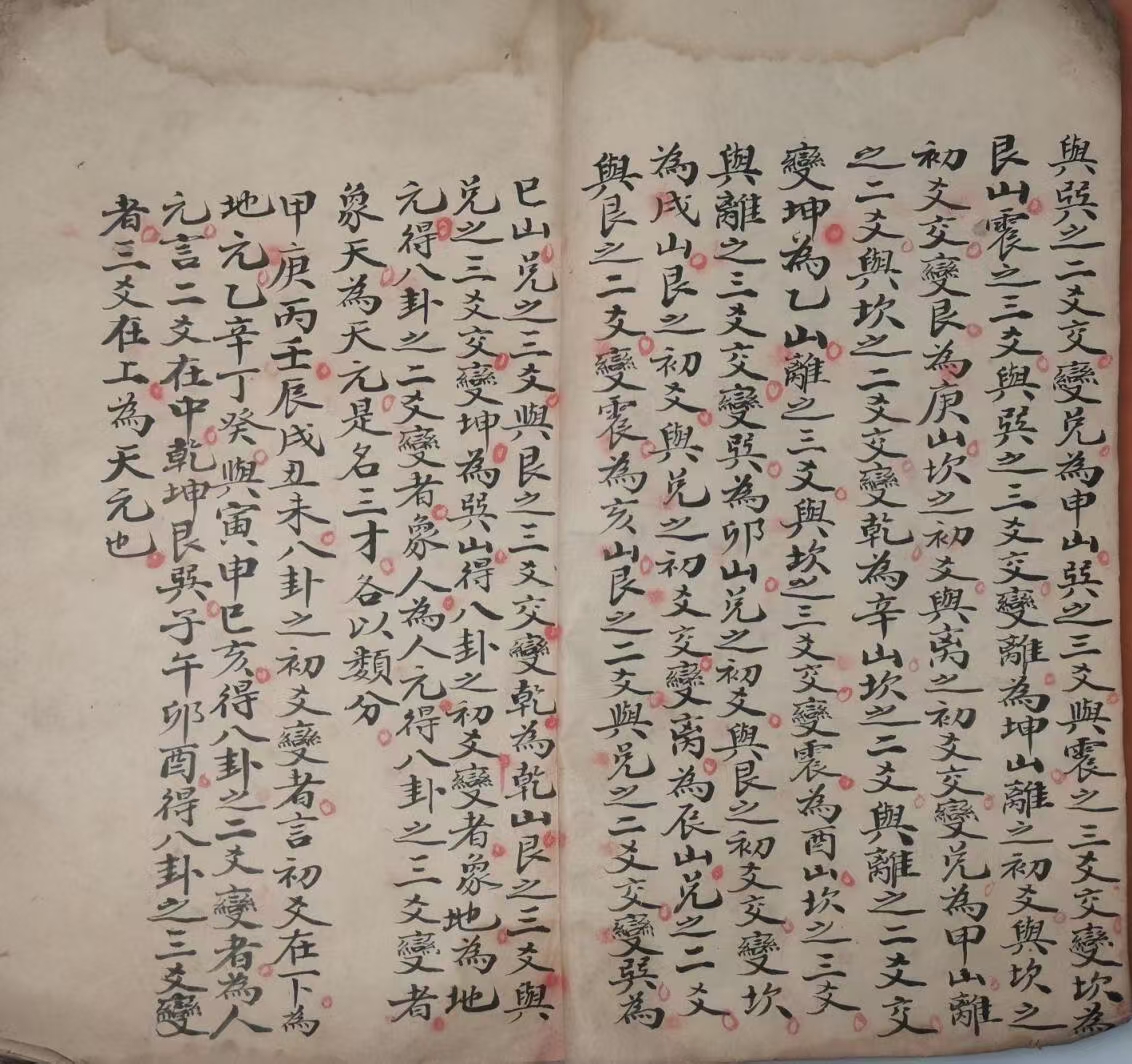 與巽之二爻交變兌為申山巽之三爻與震之三爻交變坎為
艮山震之三爻與巽之三爻交變離為坤山離之初爻與坎之
初爻交變艮為庚山坎之初爻與离之初爻交變兌為甲山離
之二爻與坎之二爻交變乾為辛山坎之二爻與離之二爻交
變坤為乙山離之三爻與坎之三爻交變震為酉山坎之三爻
與離之三爻交變巽為卯山兌之初爻與艮之初爻交變坎
為戌山艮之初爻與兌之初爻交變离為辰山兌之二爻
與艮之二爻變震為亥山艮之二爻與兌之二爻交變巽為
巳山兌之三爻與艮之三爻交變乾為乾山艮之三爻與
兌之三爻交變坤為巽山得八卦之初爻變者象地為地
元得八卦之二爻變者象人為人元得八卦之三爻變者
象天為天元是名三才各以類分
甲庚丙壬辰戌丑未八卦之初爻變者言初爻在下為
地元乙辛丁癸與寅申巳亥得八卦之二爻變者為人
元言二爻在中乾坤艮巽子午卯酉得八卦之三爻變
者三爻在上為天元也